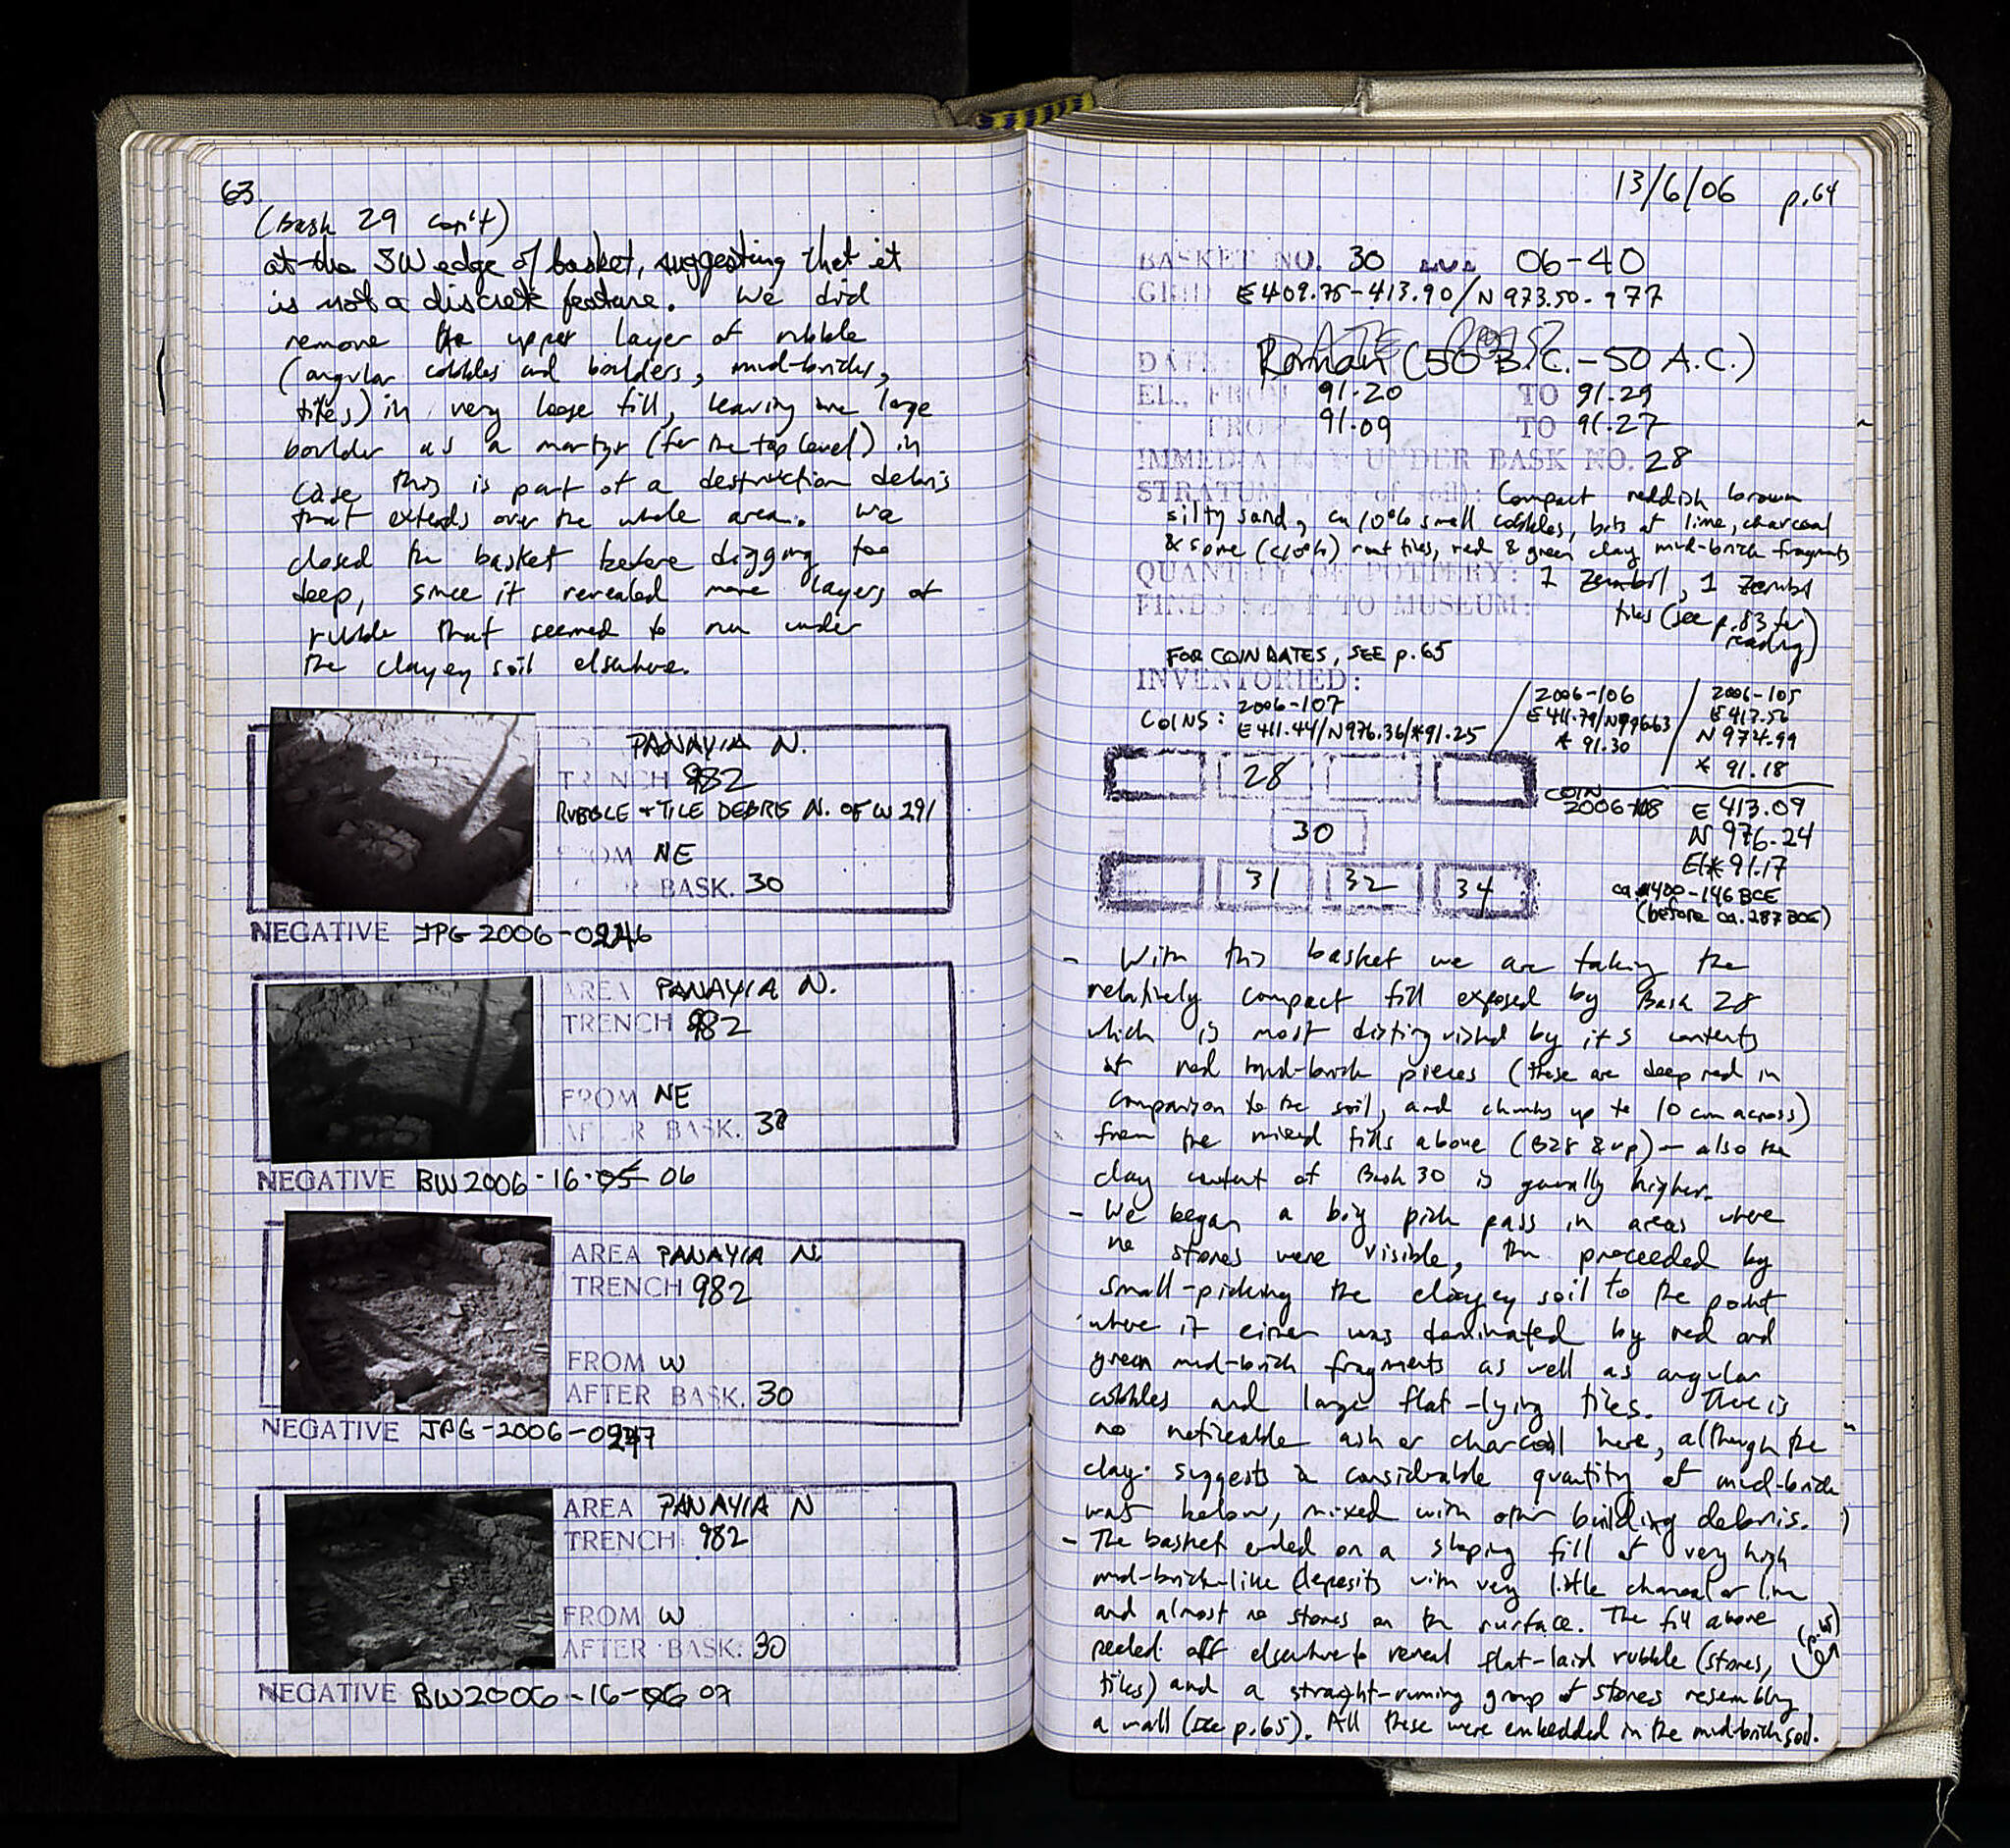 63
(Bask 29 con't)
at the SW edge of basket, suggesting that it
is not a discrete feature. We did
remove the upper layer of rubble
(angular cobbles and boulders, mud-bricks,
tiles) in very loose fill, leaving one large
boulder as a martyr (for the top level) in
case this is part of a destruction debris
that extends over the whole area. We
closed the basket before digging too
deep, since it revealed more layers of
rubble that seemed to run under
the clayey soil elsewhere.
PANAYIA N.
TRENCH 982
RUBBLE + TILE DEBRIS N. OF W 291
FROM NE
BASK. 30
NEGATIVE JPG 2006-0
AREA PANAYIA N.
TRENCH 982
FROM NE
AFTER BASK. 30
NEGATIVE BW2006-16-05 06
AREA PANAYIA N
TRENCH 982
FROM W
AFTER BASK. 30
NEGATIVE JPG-2006-0
AREA PANAYIA N
TRENCH 982
FROM W
AFTER BASK. 30
NEGATIVE BW2006-16-06 07
13/6/06 p.64
BASKET NO. 30 06-40
GRID E409.75-413.90/N973.50-977
DATE: Roman (50 B.C.-50 A.C.)
EL., FROM 91.20 TO 91.29
FROM 91.09 TO 91.27
IMMEDIATELY UNDER BASK NO. 28
STRATUM of soil): Compact reddish brown
silty sand, ca 10% small cobbles, bits of lime, charcoal
& some (<10%) roof tiles, red & green clay mud-brick fragments
QUANTITY OF POTTERY: 1 Zembil, 1 zembil
FINDS SENT TO MUSEUM: tiles (see p.83 for
reading)
FOR COIN DATES, SEE p.65
INVENTORIED:
COINS: 2006-107
E411.44/N976.36/*91.25
2006-106
E411.79/N
* 91.30
2006-105
E412.56
N974.99
* 91.18
28
30
31 32 34
COIN
2006-108 E 413.09
N 976.24
El* 91.17
ca. 400-146 BCE
(before ca. 287 BCE)
- With this basket we are taking the
relatively compact fill exposed by Bask 28
which is most distinguished by its contents
of red mud-brick pieces (these are deep red in
comparison to the soil, and chunks up to 10 cm across)
from the mixed fills above (B28 & up) - also the
clay content of Bask 30 is generally higher.
- We began a big pick pass in areas where
no stones were visible, then proceeded by
small-picking the clayey soil to the point
where it either was dominated by red and
green mud-brick fragments as well as angular
cobbles and large flat-lying tiles. There is
no noticeable ash or charcoal here, although the
clay suggests a considerable quantity of mud-brick
was below, mixed with other building debris.
- The basket ended on a sloping fill of very high
mud-brick-like deposits with very little charcoal or lime
and almost no stones on the surface. The fill above
peeled off elsewhere to reveal flat-laid rubble (stones,
(p.65)
tiles) and a straight-running group of stones resembling
a wall (see p.65). All these were embedded in the mud-brick soil.